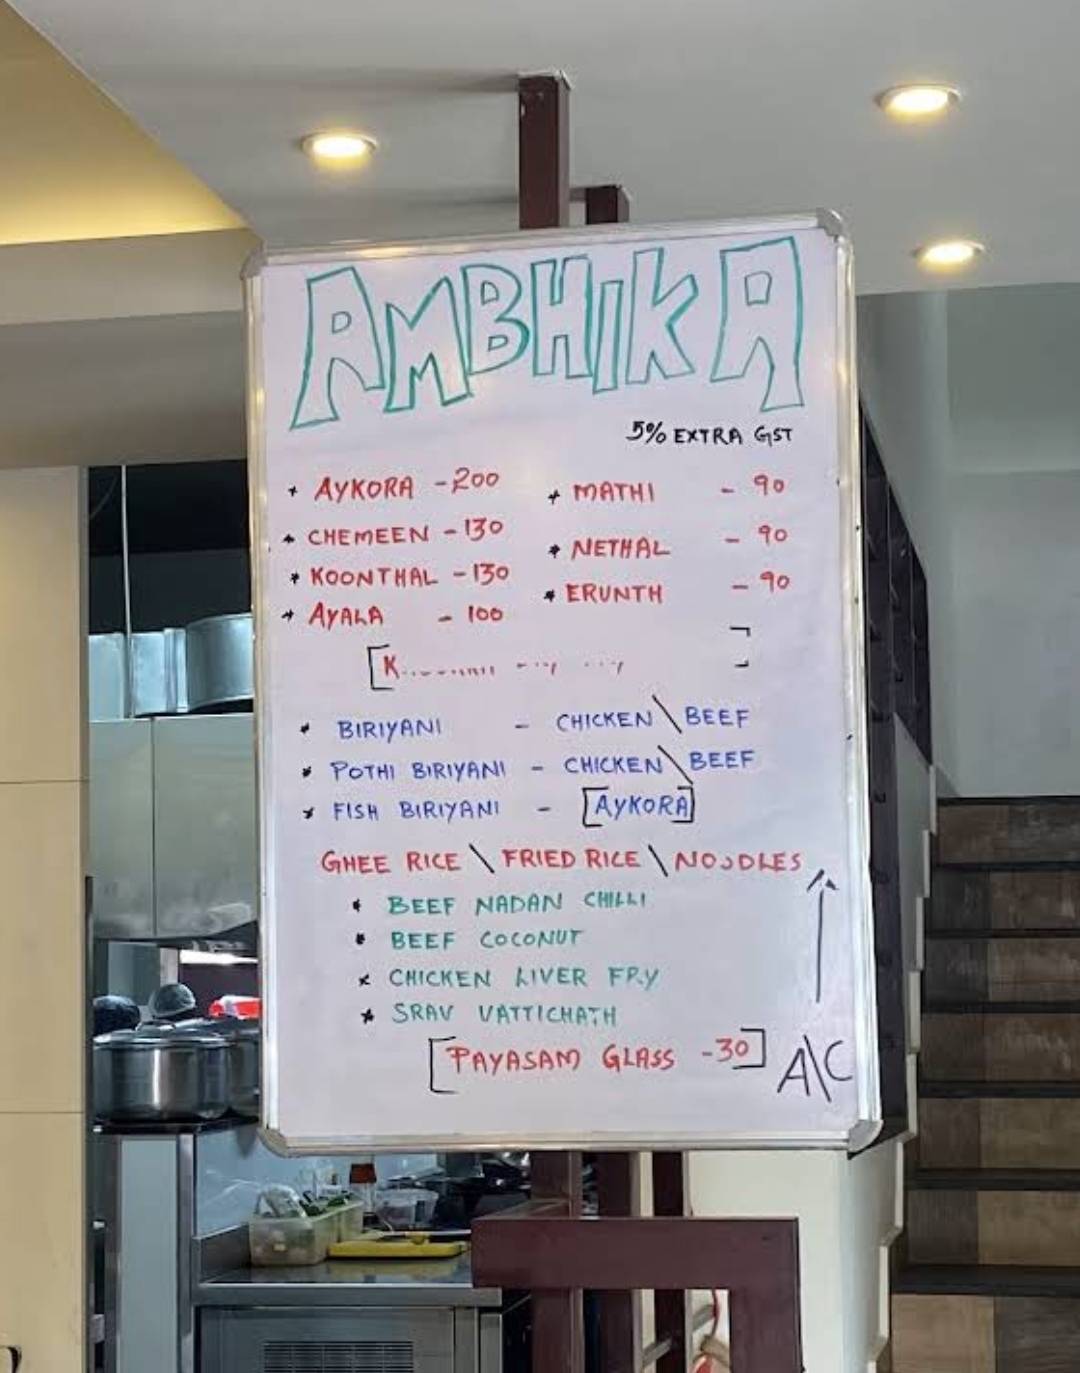 AMBHIKA
5% EXTRA GST
* AYKORA - 200 * MATHI - 90
* CHEMEEN - 130 * NETHAL - 90
* KOONTHAL - 130 * ERUNTH - 90
* AYALA - 100
* BIRIYANI - CHICKEN \ BEEF
* POTHI BIRIYANI - CHICKEN \ BEEF
* FISH BIRIYANI - [AYKORA]
GHEE RICE \ FRIED RICE \ NOODLES
* BEEF NADAN CHILLI
* BEEF COCONUT
* CHICKEN LIVER FRY
* SRAV VATTICHATH
[PAYASAM GLASS - 30]
A\C